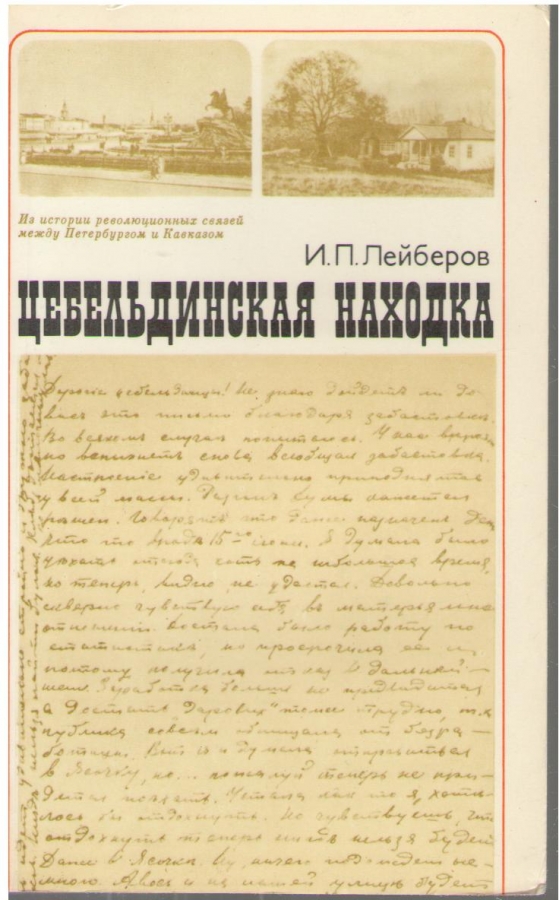 Из истории революционных связей
между Петербургом и Кавказом
И.П.Лейберов
ЦЕБЕЛЬДИНСКАЯ НАХОДКА
Дорогие цебельданцы! Не знаю дойдетъ ли до
васъ это письмо благодаря забастовкѣ.
Во всякомъ случаѣ попытаюсь. У насъ
но вспыхнетъ снова всеобщая забастовка.
Настроеніе удивительно приподнятое
у всей массы. Разгонъ Думы кажется
рѣшенъ. Говорятъ что даже назначенъ день
15го іюня. Я думала было
уѣхать отсюда хоть на небольшое время,
но теперь, видно, не удастся. Довольно
скверно чувствую себя въ матерьяльно
отношеніи. Достала было работу по
статистикѣ, но просрочила ее и
потому получила отказъ въ дальнѣй-
шемъ. Заработка больше не предвидится
а достать "даровыхъ" тоже трудно, т.к.
публика совсѣмъ обнищала отъ безра-
ботицы. Вотъ и думала отправиться
въ Ясочку, но... пожалуй теперь не при-
дется поѣхать. Устала какъ то я, хотѣ-
лось бы отдохнуть. Но чувствуешь, что
отдохнуть теперь нельзя будетъ
даже въ Ясочкѣ. Ну, ничего подождемъ не-
много. Авось и на нашей улицѣ будетъ